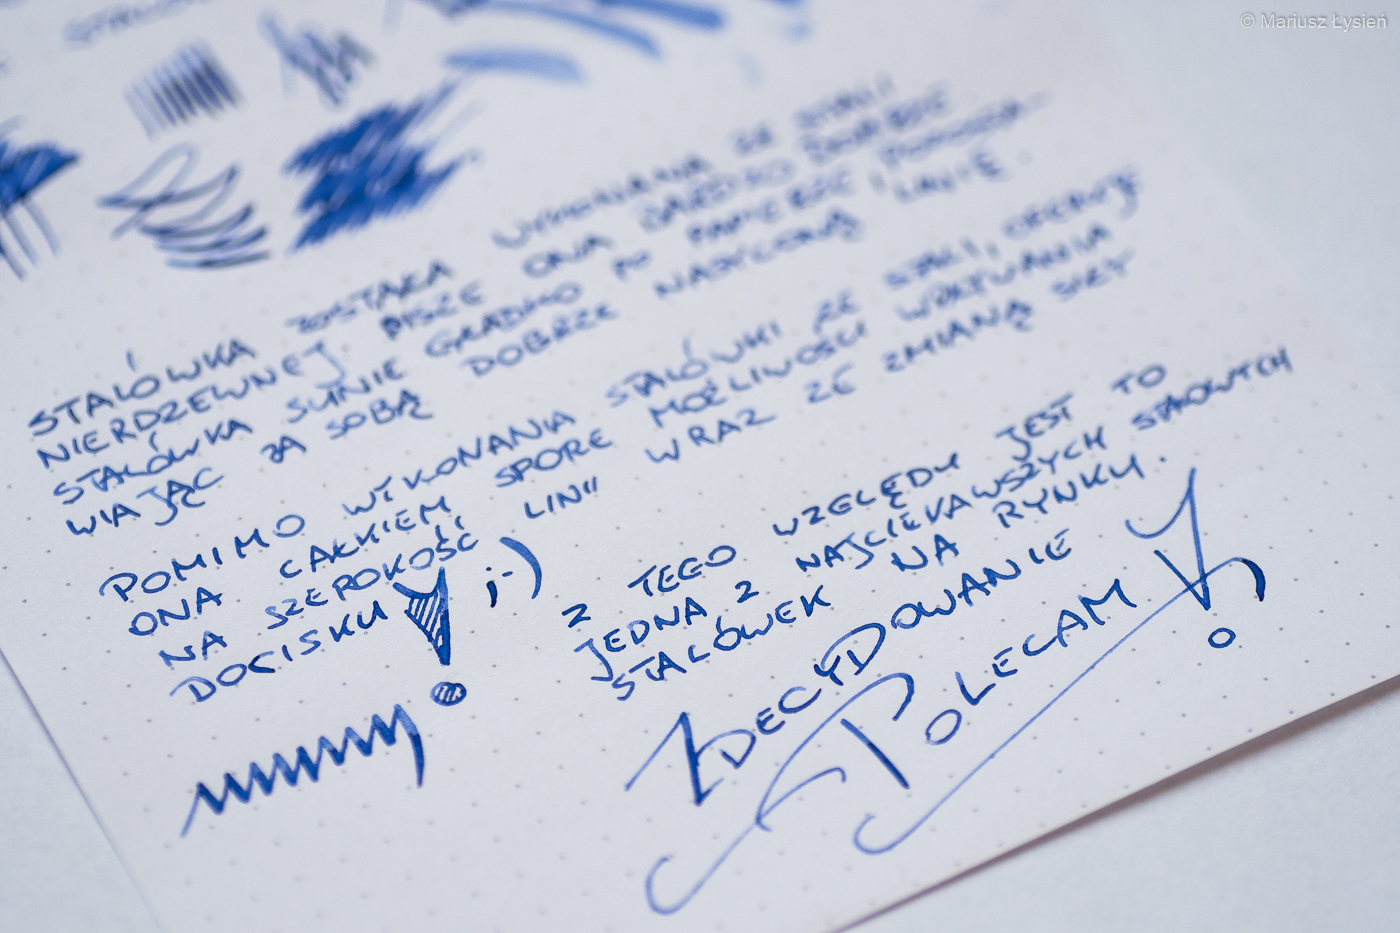 © Mariusz Łysień
STALÓWKA ZOSTAŁA WYKONANA ZE STALI
NIERDZEWNEJ. PISZE ONA BARDZO DOBRZE
STALÓWKA SUNIE GŁADKO PO PAPIERZE I POZOSTA-
WIAJĄC ZA SOBĄ DOBRZE NASYCONĄ LINIĘ.
POMIMO WYKONANIA STALÓWKI ZE STALI, OFERUJE
ONA CAŁKIEM SPORE MOŻLIWOŚCI WPŁYWANIA
NA SZEROKOŚĆ LINII WRAZ ZE ZMIANĄ SIŁY
DOCISKU! ;-)
Z TEGO WZGLĘDU JEST TO
JEDNA Z NAJCIEKAWSZYCH STALOWYCH
STALÓWEK NA RYNKU.
ZDECYDOWANIE
POLECAM!